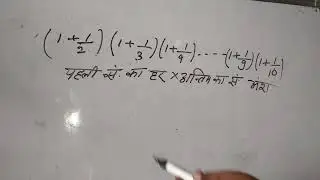 (1+1/2) (1+1/3) (1+1/4) ---- (1+1/9) (1+1/10)
पहली सं. का हर × अन्तिम का सं